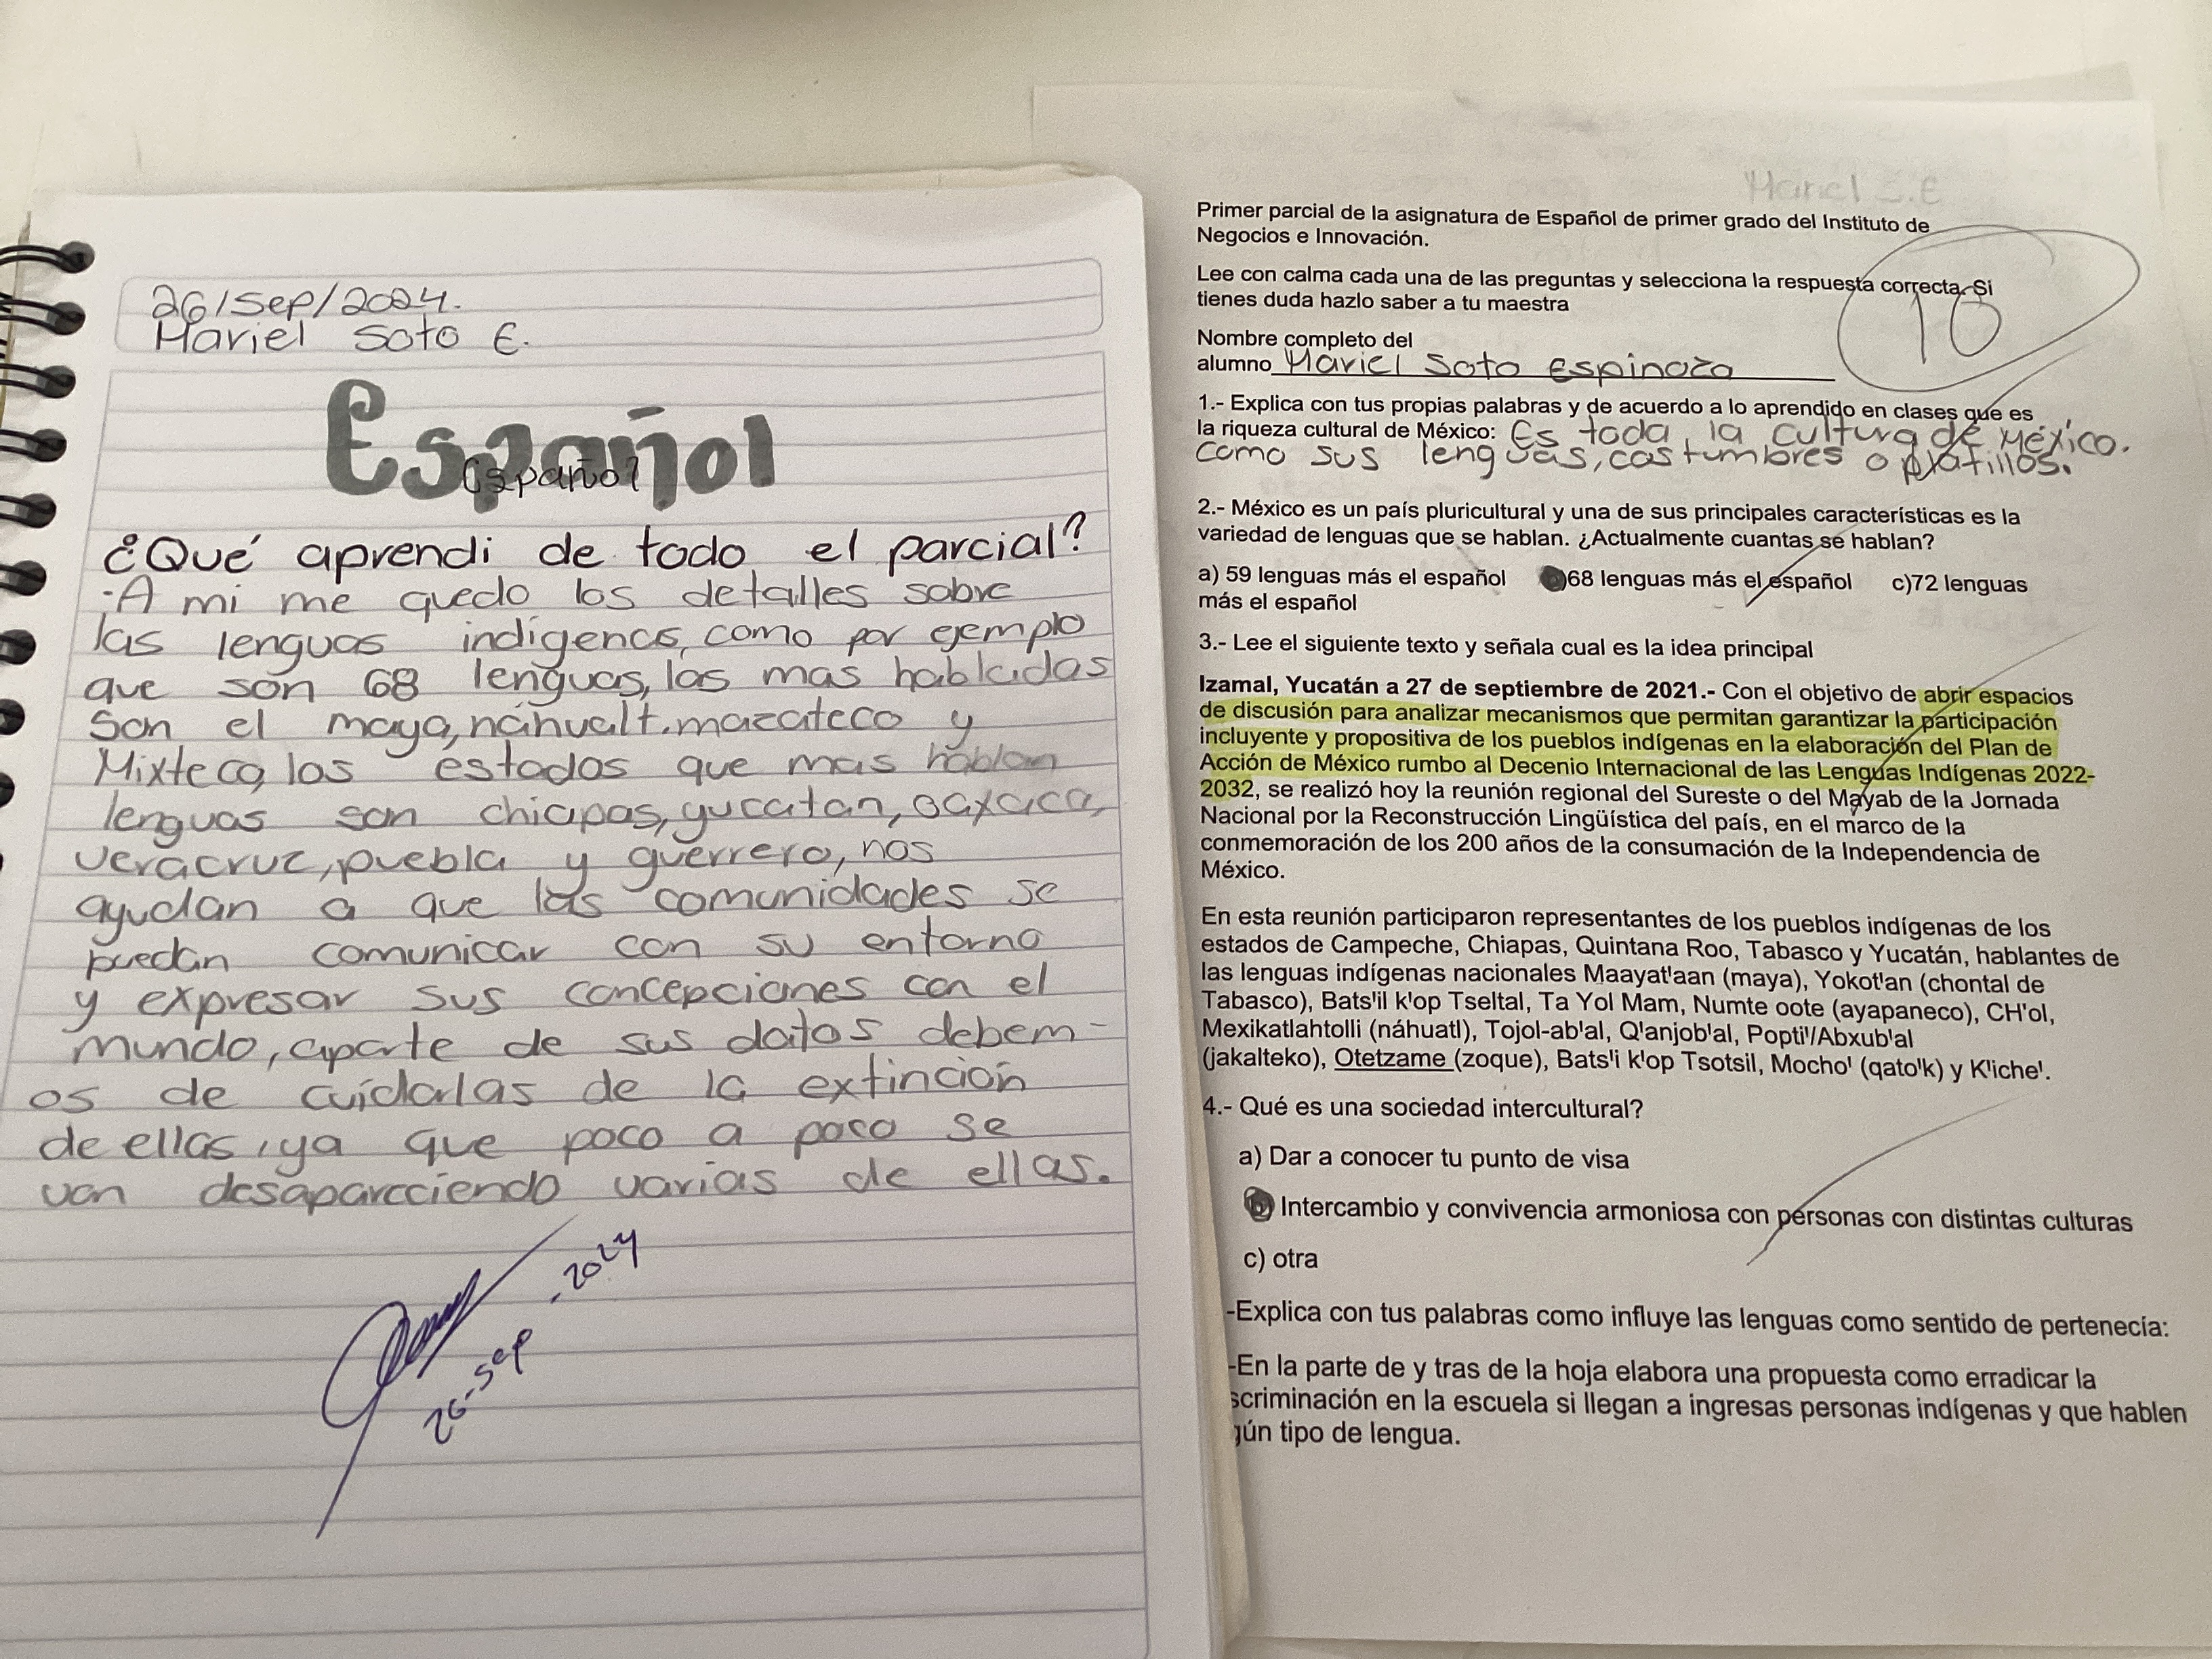 26/Sep/2024.
Mariel Soto E.
Español
Español
¿Qué aprendi de todo el parcial?
·A mi me quedo los detalles sobre
las lenguas indígenas, como por ejemplo
que son 68 lenguas, las mas habladas
son el maya, náhualt. mazateco y
Mixteco, los estados que mas hablan
lenguas son chiapas, yucatan, oaxaca,
veracruz, puebla y guerrero, nos
ayudan a que las comunidades se
puedan comunicar con su entorno
y expresar sus concepciones con el
mundo, aparte de sus datos debem-
os de cuidarlas de la extinción
de ellas, ya que poco a poco se
van desapareciendo varias de ellas.
26-sep-2024
Mariel S.E
Primer parcial de la asignatura de Español de primer grado del Instituto de
Negocios e Innovación.
Lee con calma cada una de las preguntas y selecciona la respuesta correcta. Si
tienes duda hazlo saber a tu maestra
10
Nombre completo del
alumno Mariel Soto Espinoza
1.- Explica con tus propias palabras y de acuerdo a lo aprendido en clases que es
la riqueza cultural de México: Es toda la cultura de México.
como sus lenguas, costumbres o platillos.
2.- México es un país pluricultural y una de sus principales características es la
variedad de lenguas que se hablan. ¿Actualmente cuantas se hablan?
a) 59 lenguas más el español b)68 lenguas más el español c)72 lenguas
más el español
3.- Lee el siguiente texto y señala cual es la idea principal
Izamal, Yucatán a 27 de septiembre de 2021.- Con el objetivo de abrir espacios
de discusión para analizar mecanismos que permitan garantizar la participación
incluyente y propositiva de los pueblos indígenas en la elaboración del Plan de
Acción de México rumbo al Decenio Internacional de las Lenguas Indígenas 2022-
2032, se realizó hoy la reunión regional del Sureste o del Mayab de la Jornada
Nacional por la Reconstrucción Lingüística del país, en el marco de la
conmemoración de los 200 años de la consumación de la Independencia de
México.
En esta reunión participaron representantes de los pueblos indígenas de los
estados de Campeche, Chiapas, Quintana Roo, Tabasco y Yucatán, hablantes de
las lenguas indígenas nacionales Maayat'aan (maya), Yokot'an (chontal de
Tabasco), Bats'il k'op Tseltal, Ta Yol Mam, Numte oote (ayapaneco), CH'ol,
Mexikatlahtolli (náhuatl), Tojol-ab'al, Q'anjob'al, Popti'/Abxub'al
(jakalteko), Otetzame (zoque), Bats'i k'op Tsotsil, Mocho' (qato'k) y K'iche'.
4.- Qué es una sociedad intercultural?
a) Dar a conocer tu punto de visa
b) Intercambio y convivencia armoniosa con personas con distintas culturas
c) otra
-Explica con tus palabras como influye las lenguas como sentido de pertenecía:
-En la parte de y tras de la hoja elabora una propuesta como erradicar la
scriminación en la escuela si llegan a ingresas personas indígenas y que hablen
gún tipo de lengua.